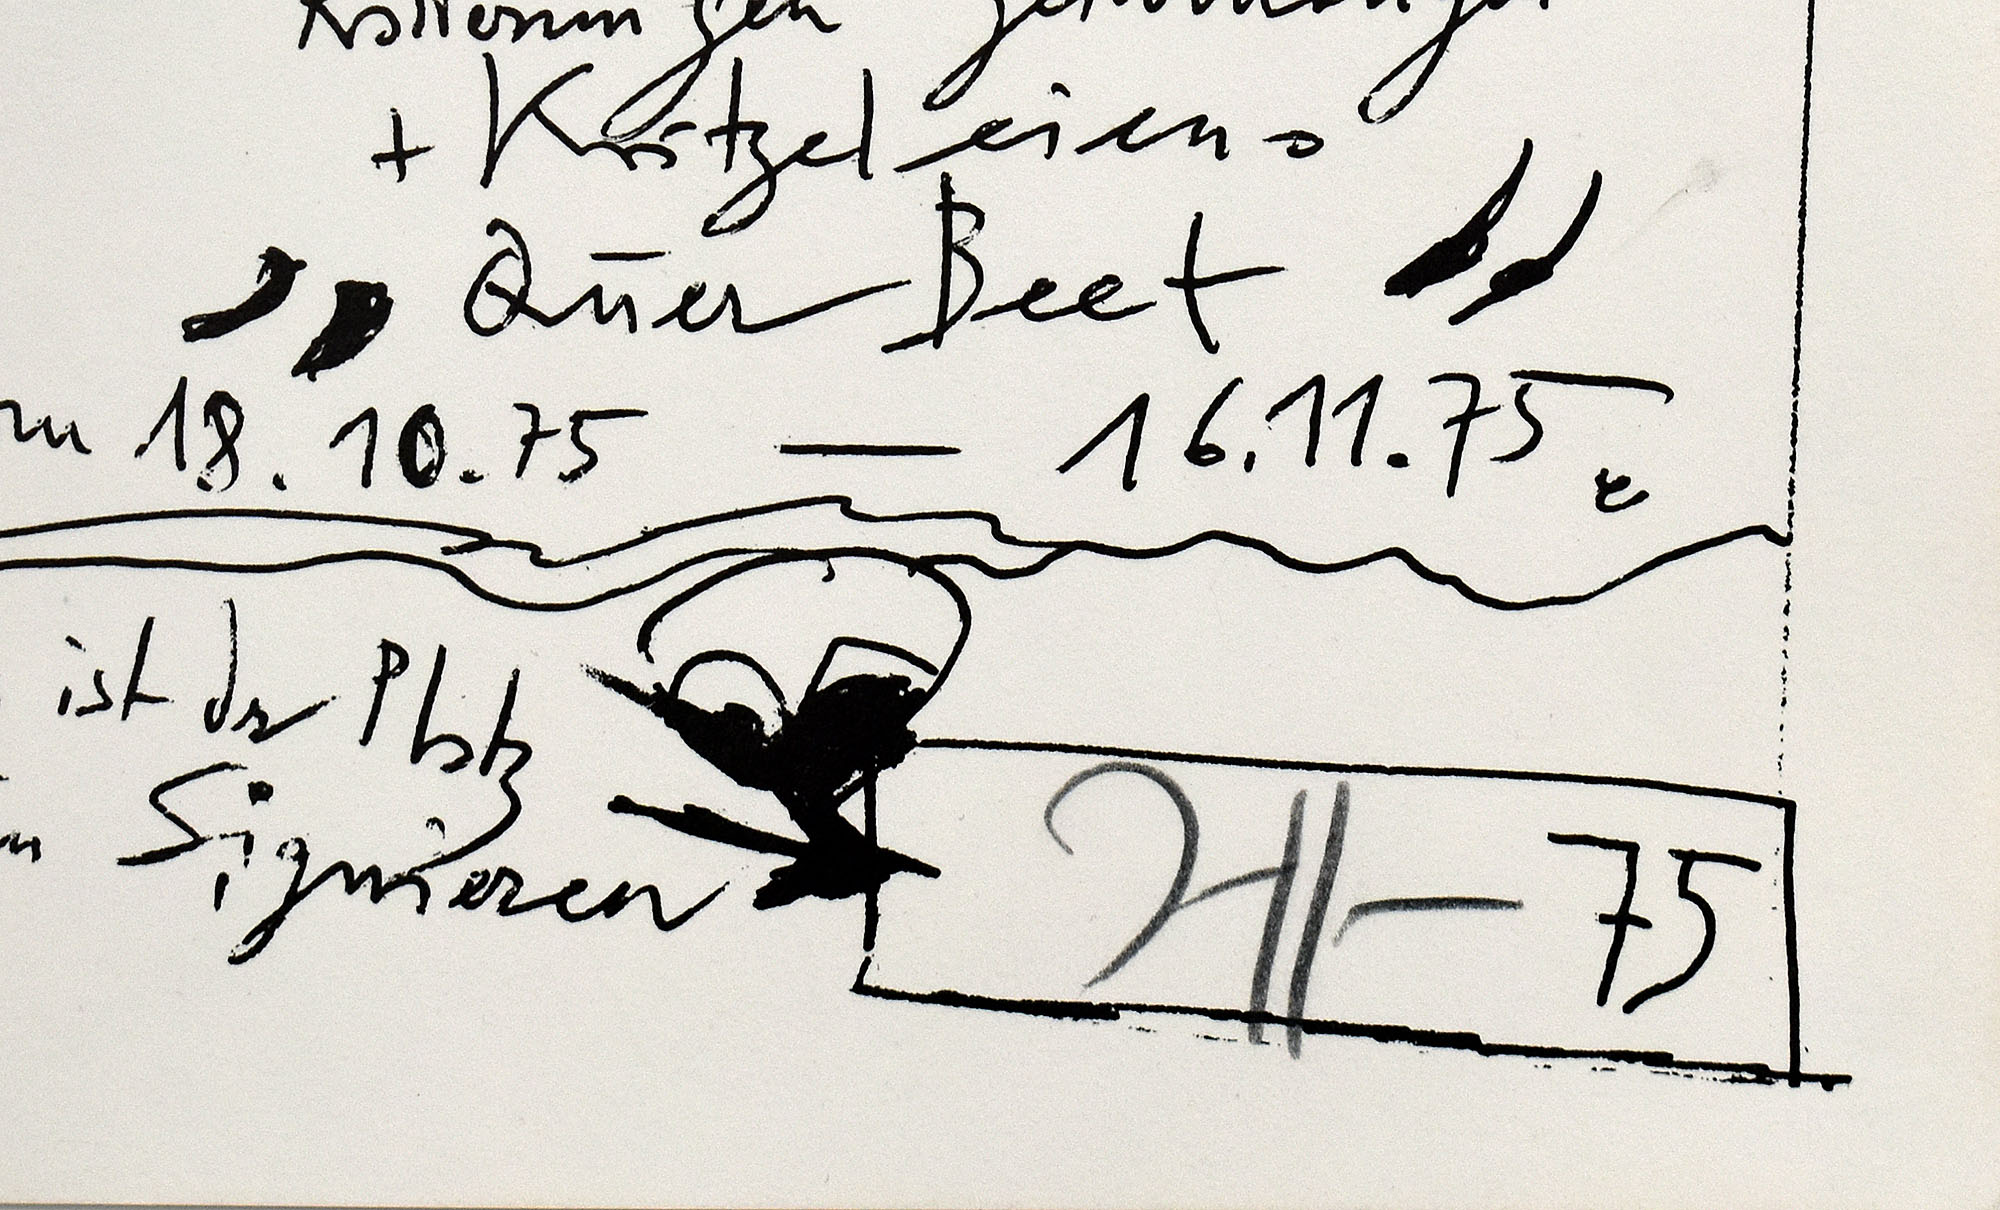 + Kritzeleien =
„ Quer Beet "
18.10.75 — 16.11.75
ist der Platz
Signieren
75